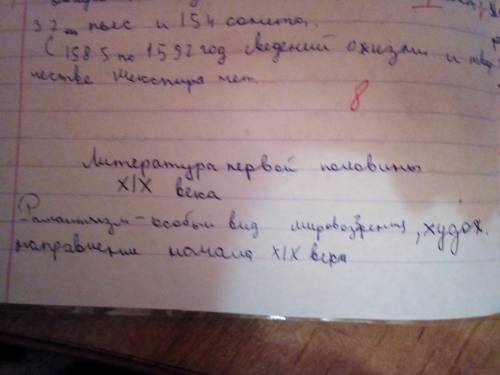 37 пьес и 154 сонета.
С 1585 по 1592 год сведений о жизни и твор
честве Шекспира нет.
8
Литература первой половины
XIX века
Романтизм - особый вид мировоззрения, худож.
направление начала XIX века